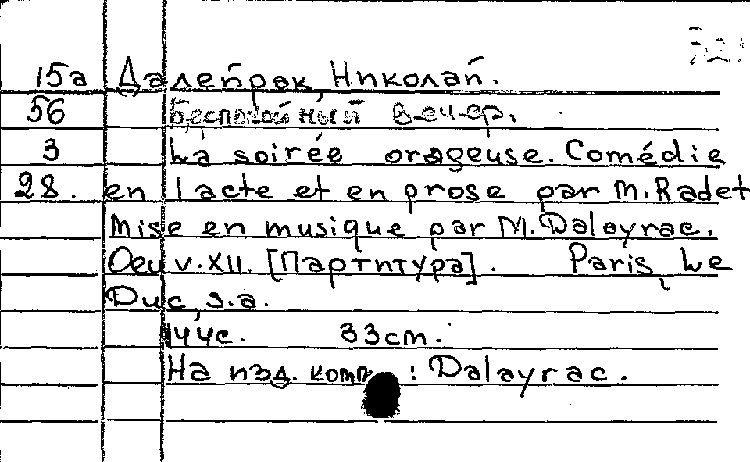 15а Далейрак, Николай.
56 Беспокойный вечер.
3 La soirée orageuse. Comédie
28. en 1 acte et en prose par M. Radet
Mise en musique par M. Dalayrac.
Oeuv. XII. [Партитура]. Paris, Le
Duc, s.a.
144с. 33cm.
На изд. комп. : Dalayrac.